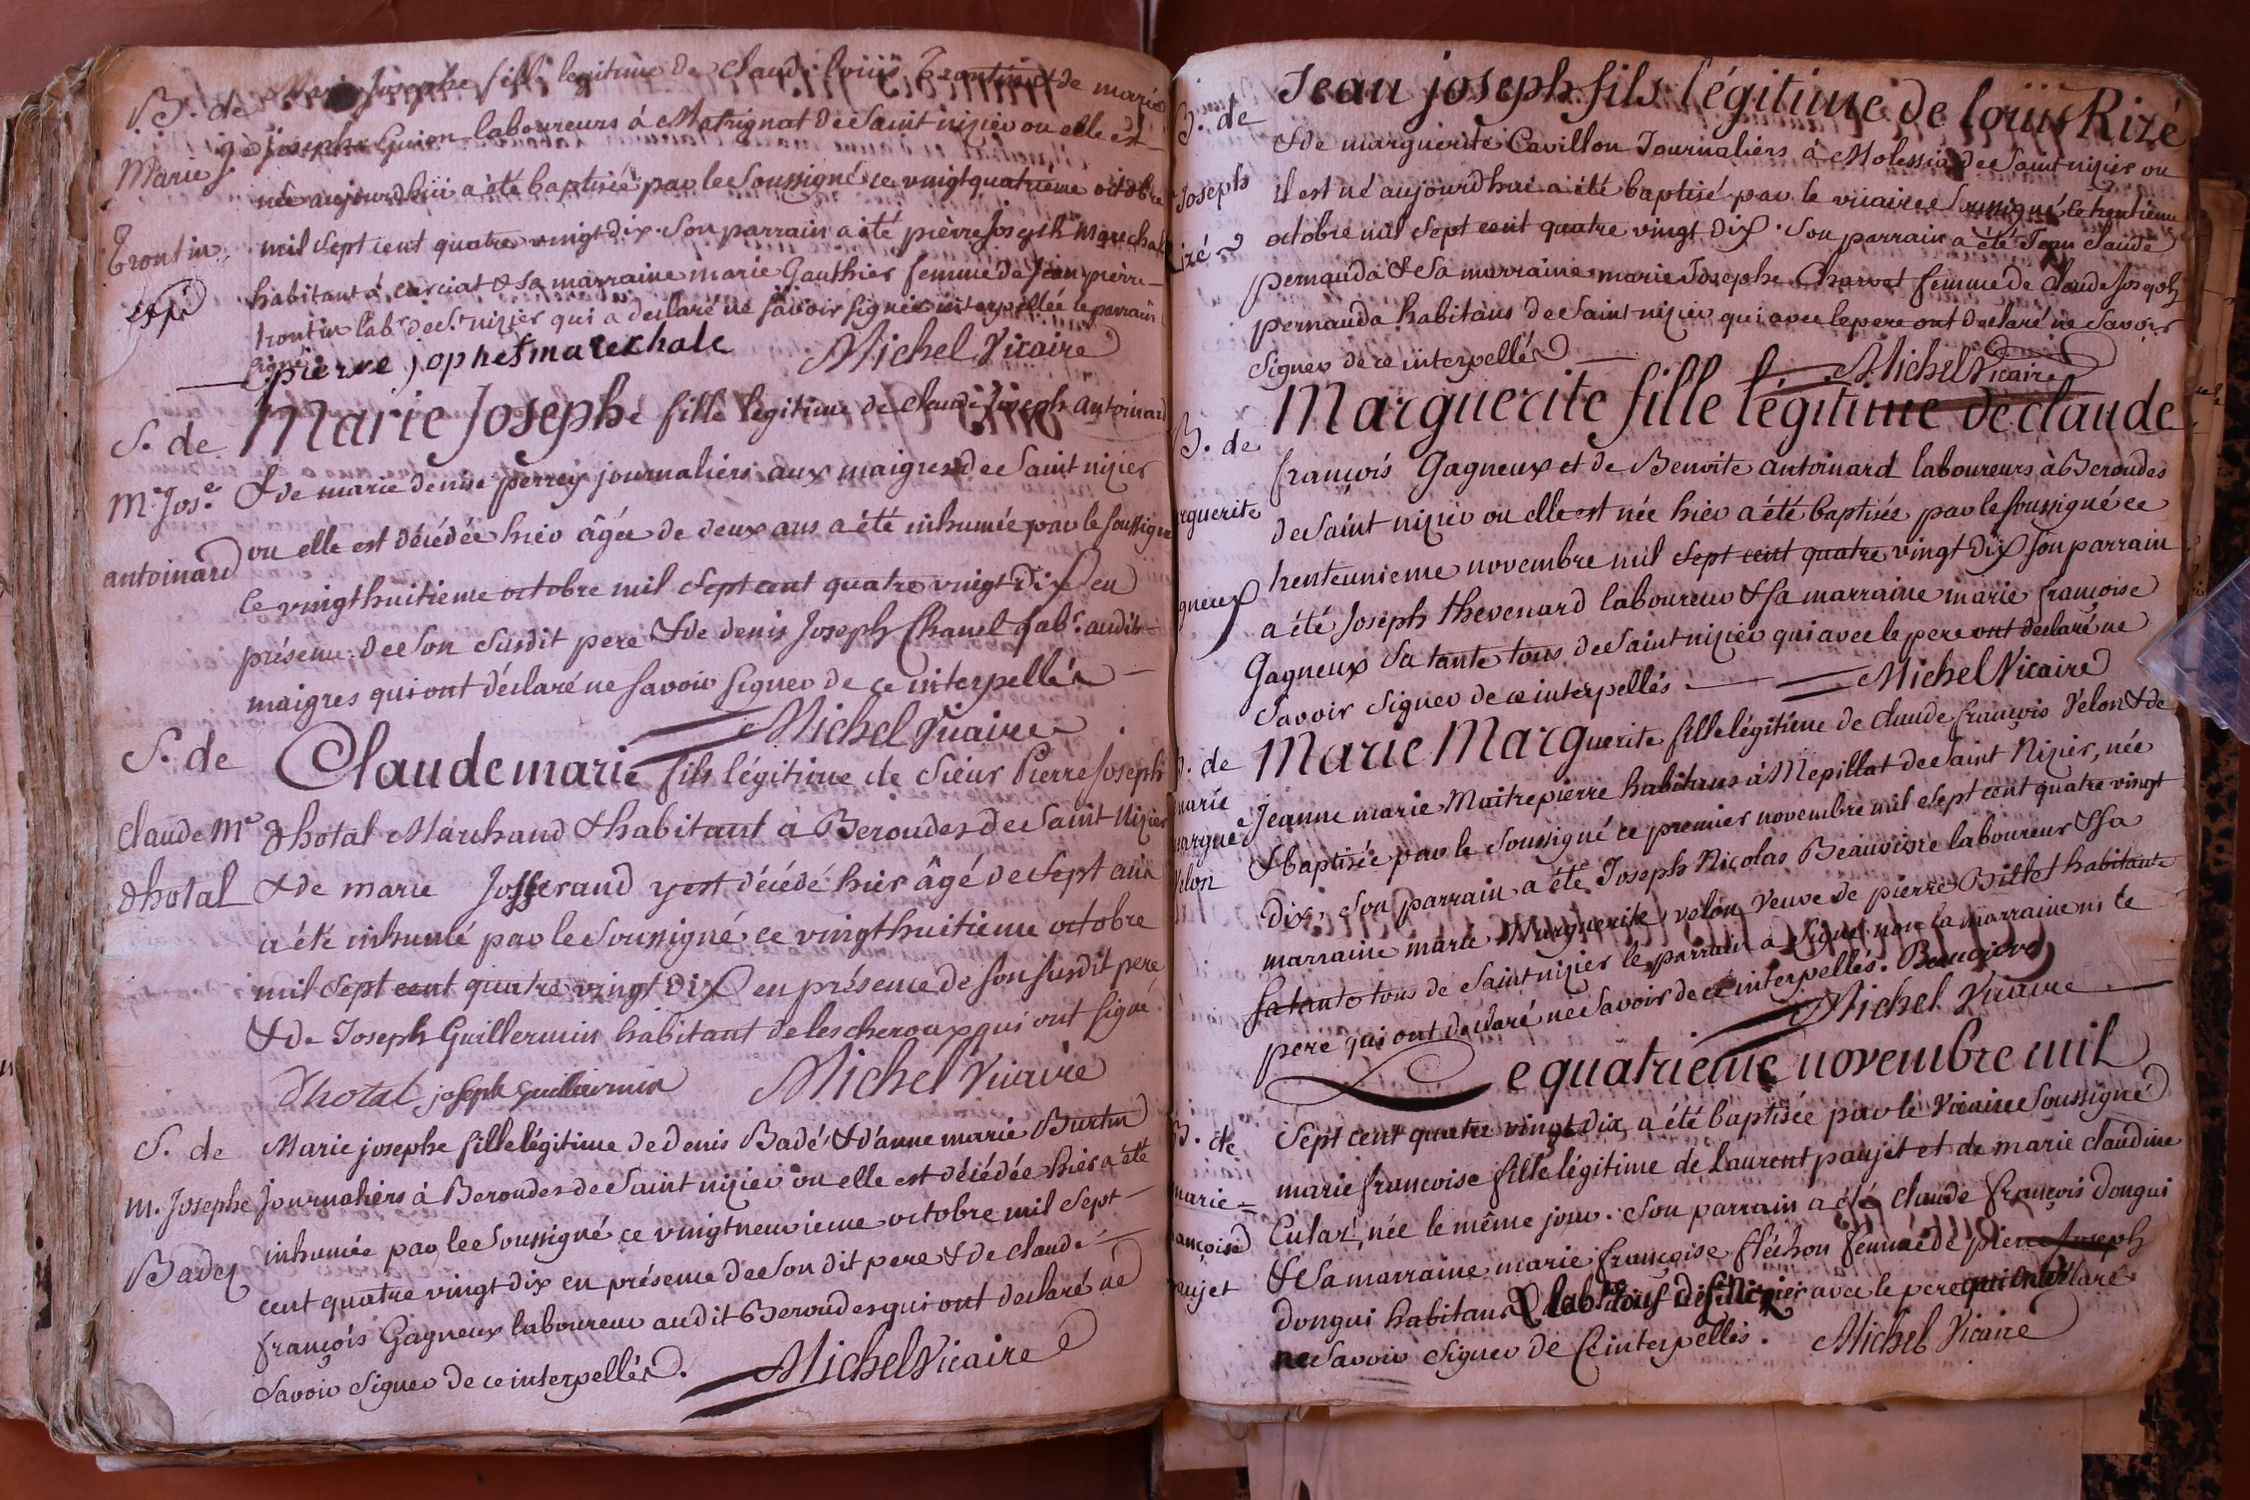 B. de
Marie
Trontin
Marie Josephe fille legitime de claude louis Trontin & de marie
josephe Guion laboureurs à Matrignat de Saint nizier ou elle est
née aujourdhui a été baptisée par le Soussigné ce vingtquatrième octobre
mil sept cent quatre vingt dix. Son parrain a été pierre Joseph Marechal
habitant à curciat & sa marraine marie Gauthier femme de jean pierre
trontin labr. de St. nizier qui a declaré ne savoir signer interpellée le parrain
signé
pierre jophet marechale Michel Vicaire
S. de
Me. Jose.
antoinard
Marie Josephe fille legitime de claude Joseph antoinard
& de marie denise perrey journaliers aux maigres de Saint nizier
ou elle est décédée hier âgée de deux ans a été inhumée par le soussigné
ce vingthuitieme octobre mil sept cent quatre vingt dix en
présence de son susdit pere & de denis Joseph Chanel labr. audit
maigres qui ont déclaré ne savoir signer de ce interpellés
Michel Vicaire
S. de
Claude Me
dhotal
Claude marie fils légitime de Sieur Pierre Joseph
dhotal Marchand & habitant à Beroudes de Saint Nizier
& de marie Josserand y est décédé hier âgé de sept ans
a été inhumé par le Soussigné ce vingthuitieme octobre
mil sept cent quatre vingt dix en présence de son susdit pere
& de Joseph Guillermin habitant de lescheroux qui ont signé
Dhotal joseph guillermin Michel Vicaire
S. de
M. Josephe
Badez
Marie josephe fille légitime de denis Badé & d'anne marie Burtin
journaliers à Beroudes de Saint nizier ou elle est décédée hier a été
inhumée par le Soussigné ce vingtneuvieme octobre mil sept
cent quatre vingt dix en présence de son dit pere & de claude
françois Gagneux laboureur audit Beroudes qui ont declaré ne
savoir signer de ce interpellés. Michel Vicaire
B. de
Joseph
Rizé
Jean joseph fils légitime de louis Rizé
& de marguerite Cavillon Journaliers à Molessia de Saint nizier ou
il est né aujourdhui a été baptisé par le vicaire Soussigné ce trentieme
octobre mil sept cent quatre vingt dix. Son parrain a été Jean claude
pernauda & sa marraine marie Josephe Charvet femme de Claude Joseph
pernauda habitans de Saint nizier qui avec le pere ont declaré ne savoir
signer de ce interpellés Michel Vicaire
B. de
rguerite
gneux
Marguerite fille légitime de claude
françois Gagneux et de Benoite antoinard laboureurs à Beroudes
de Saint nizier ou elle est née hier a été baptisée par le soussigné ce
trenteunieme novembre mil sept cent quatre vingt dix son parrain
a été Joseph thevenard laboureur & sa marraine marie françoise
Gagneux sa tante tous de Saint nizier qui avec le pere ont declaré ne
savoir signer de ce interpellés. Michel Vicaire
B. de
marie
margue
Velon
Marie Marguerite fille légitime de claude françois Velon & de
Jeanne marie Maitrepierre habitans à Mepillat de Saint Nizier, née
& baptisée par le Soussigné ce premier novembre mil sept cent quatre vingt
dix, son parrain a été Joseph Nicolas Beauvoire laboureur & sa
marraine marie Marguerite velon veuve de pierre Billet habitante
sa tante tous de Saint nizier le parrain a signé non la marraine ni le
pere qui ont declaré ne savoir de ce interpellés.
Michel Vicaire
B. de
marie
ançoise
aujet
Le quatrieme novembre mil
sept cent quatre vingt dix a été baptisée par le Vicaire Soussigné
marie francoise fille légitime de laurent paujet et de marie claudine
Cutar, née le même jour. Son parrain a été claude françois dongui
& sa marraine marie françoise fléchon femme de pierre Joseph
dongui habitans labrs. tous de St. Nizier avec le pere qui ont declaré
ne savoir signer de ce interpellés. Michel Vicaire